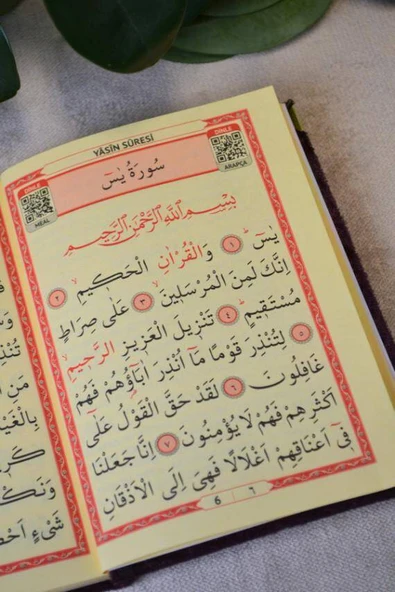 YÂSİN SÛRESİ
DİNLE
ARAPÇA
سُورَةُ يٰسٓ
DİNLE
MEAL
بِسْمِ اللّٰهِ الرَّحْمٰنِ الرَّحِيمِ
يٰسٓ ۝١ وَالْقُرْاٰنِ الْحَكٖيمِ ۝٢
اِنَّكَ لَمِنَ الْمُرْسَلٖينَ ۝٣ عَلٰى صِرَاطٍ
مُسْتَقٖيمٍ ۝٤ تَنْزٖيلَ الْعَزٖيزِ الرَّحٖيمِ ۝٥
لِتُنْذِرَ قَوْمًا مَٓا اُنْذِرَ اٰبَٓاؤُ۬هُمْ فَهُمْ
غَافِلُونَ ۝٦ لَقَدْ حَقَّ الْقَوْلُ عَلٰٓى
اَكْثَرِهِمْ فَهُمْ لَا يُؤْمِنُونَ ۝٧ اِنَّا جَعَلْنَا
فٖٓي اَعْنَاقِهِمْ اَغْلَالًا فَهِيَ اِلَى الْاَذْقَانِ
6 ٦